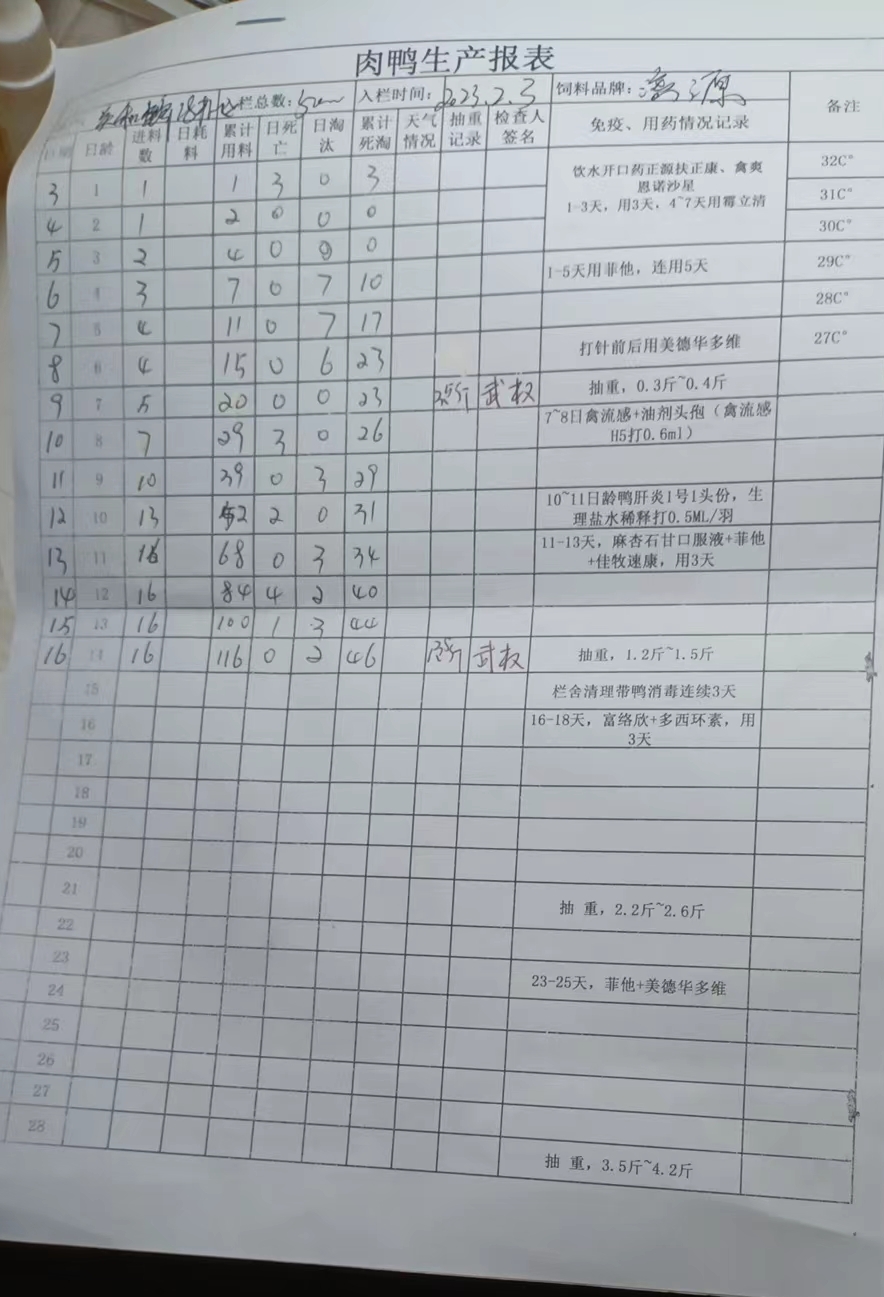 肉鸭生产报表
栏总数： 入栏时间：2023.2.3 饲料品牌： 备注
日龄 进料数 日耗料 累计用料 日死亡 日淘汰 累计死淘 天气情况 抽重记录 检查人签名 免疫、用药情况记录
3 1 1 1 3 0 3 饮水开口药正源扶正康、禽爽 32C°
恩诺沙星
1-3天，用3天，4~7天用霉立清
4 2 1 2 0 0 0 31C°
30C°
5 3 2 4 0 0 0 1-5天用菲他，连用5天 29C°
6 4 3 7 0 7 10 28C°
7 5 4 11 0 7 17 打针前后用美德华多维 27C°
8 6 4 15 0 6 23 抽重，0.3斤~0.4斤
9 7 5 20 0 0 23 武权 7~8日禽流感+油剂头孢（禽流感
H5打0.6ml）
10 8 7 29 3 0 26
11 9 10 39 0 3 29
12 10 13 52 2 0 31 10~11日龄鸭肝炎1号1头份，生
理盐水稀释打0.5ML/羽
13 11 16 68 0 3 34 11-13天，麻杏石甘口服液+菲他
+佳牧速康，用3天
14 12 16 84 4 2 40
15 13 16 100 1 3 44
16 14 16 116 0 2 46 武权 抽重，1.2斤~1.5斤
15 栏舍清理带鸭消毒连续3天
16 16-18天，富络欣+多西环素，用
3天
17
18
19
20
21 抽 重，2.2斤~2.6斤
22
23
24 23-25天，菲他+美德华多维
25
26
27
28 抽 重，3.5斤~4.2斤